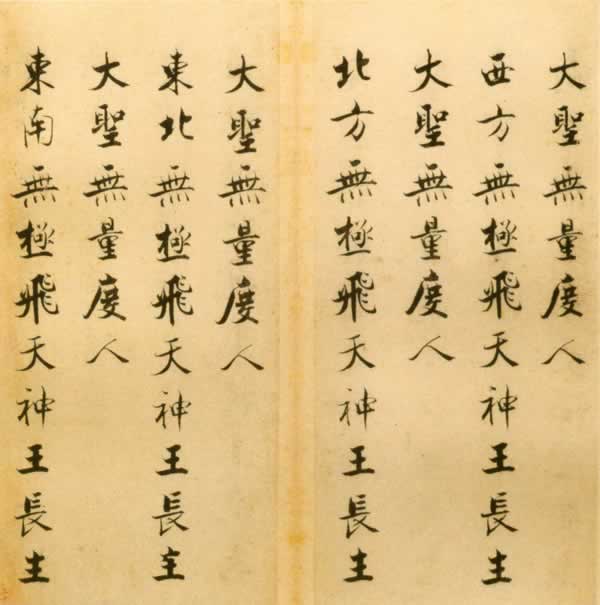 大聖無量度人
西方無極飛天神王長生
大聖無量度人
北方無極飛天神王長生
大聖無量度人
東北無極飛天神王長生
大聖無量度人
東南無極飛天神王長生